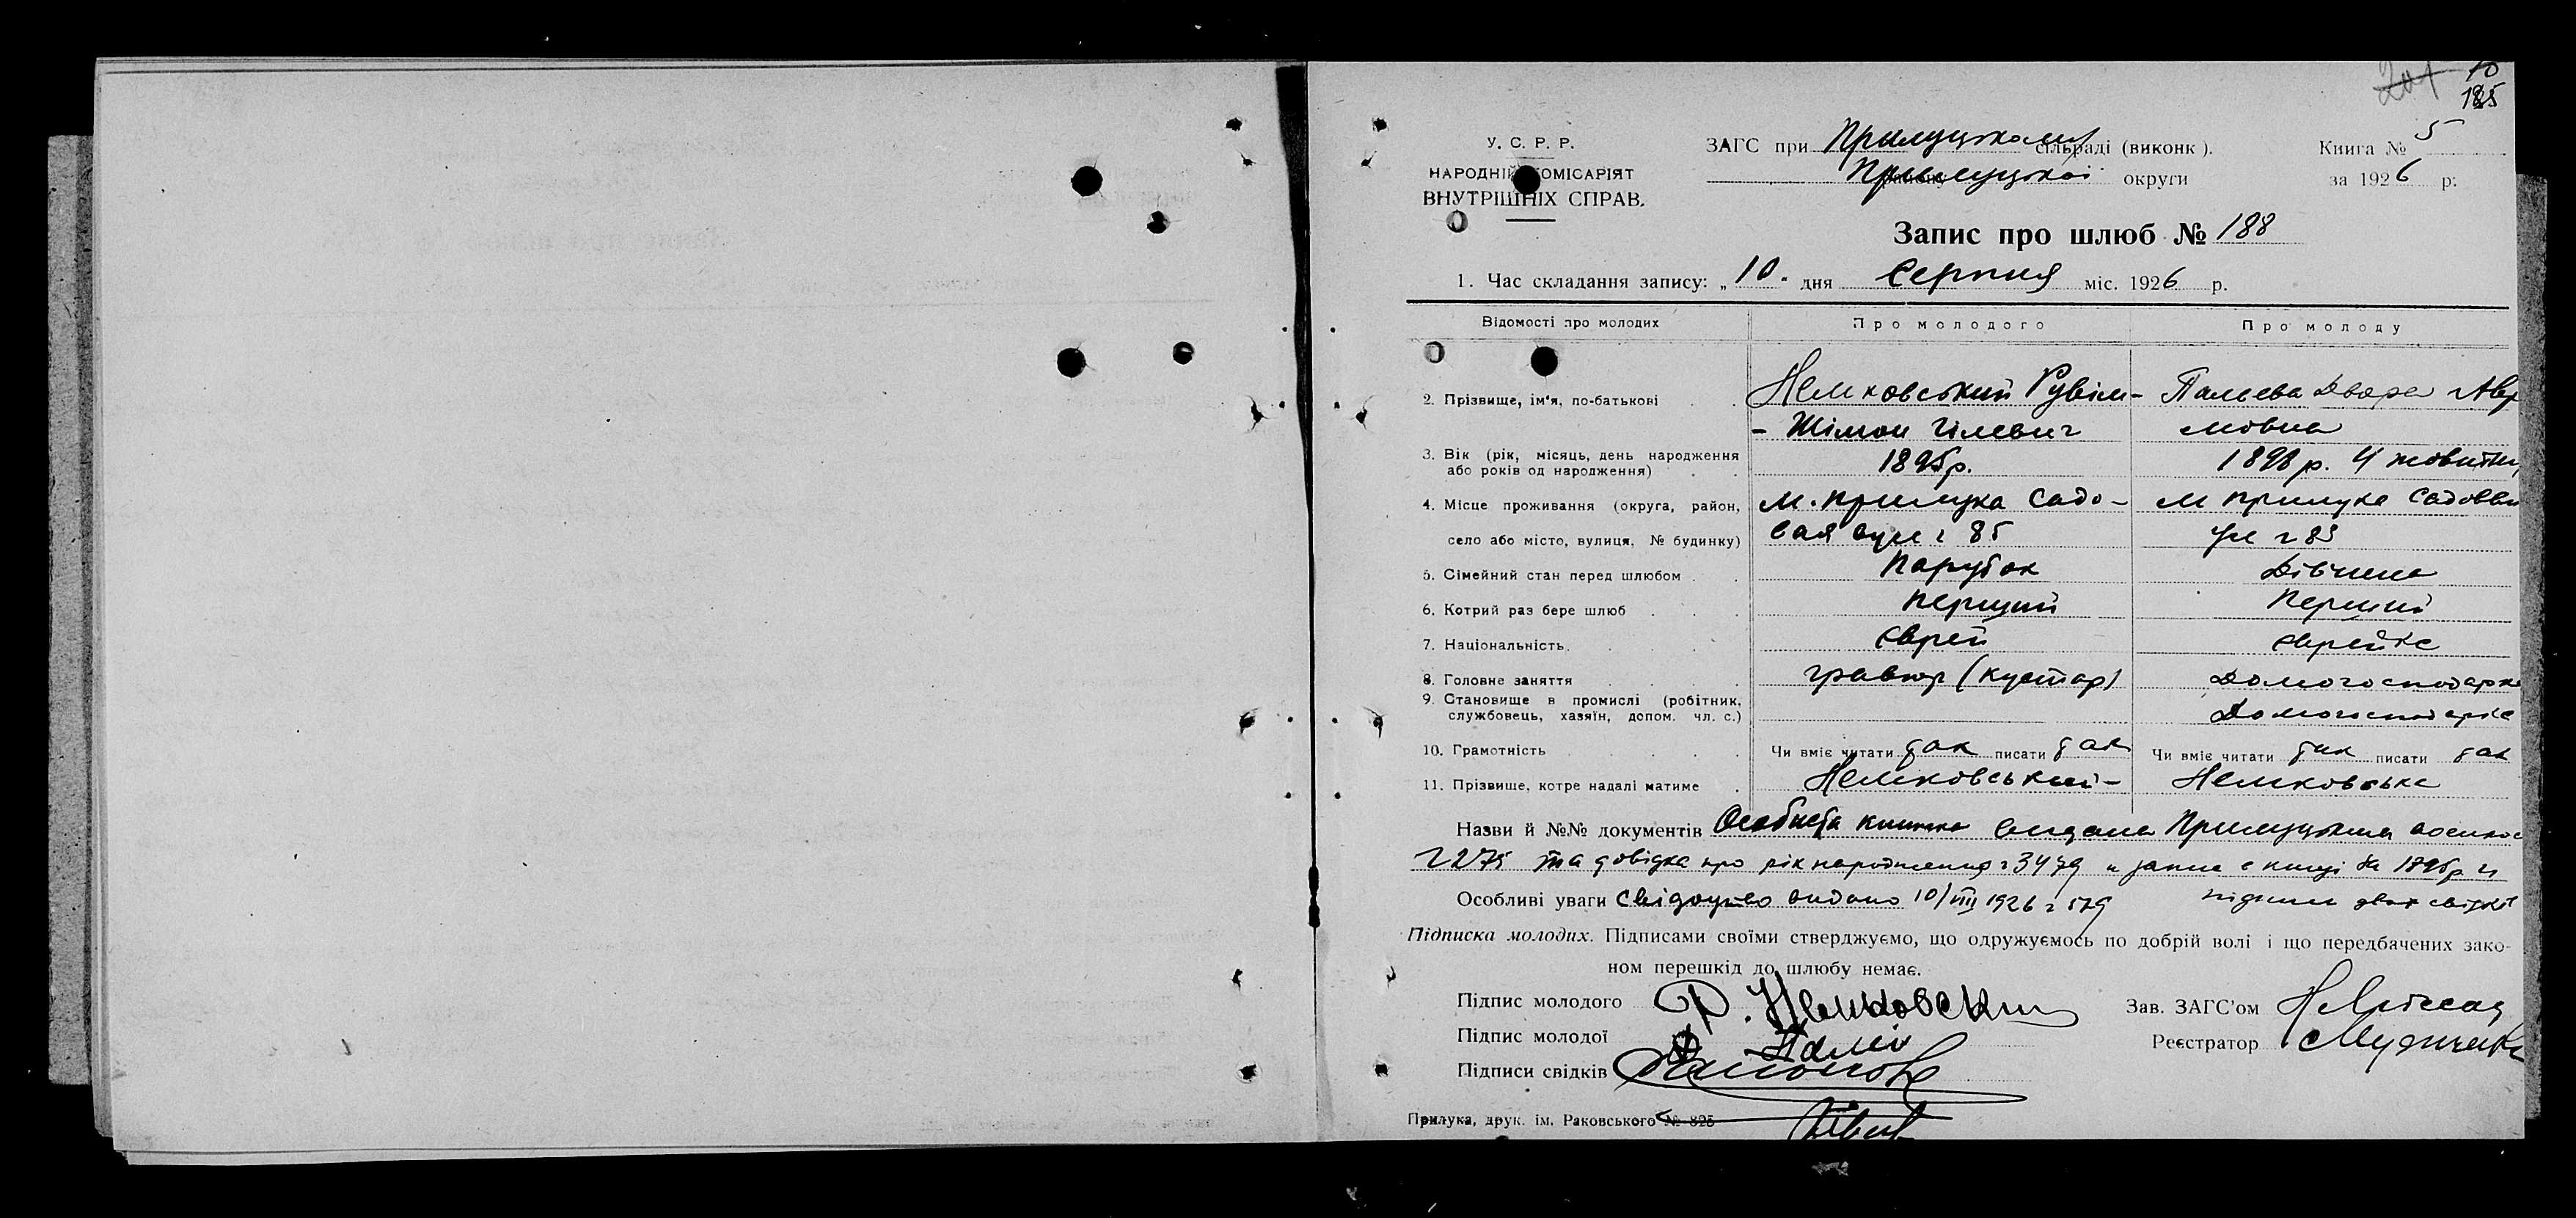 10
185
У. С. Р. Р.
НАРОДНІЙ КОМІСАРІЯТ
ВНУТРІШНІХ СПРАВ.
ЗАГС при сільраді (виконк).
Прилуцької округи
Книга № 5
за 1926 р.
Запис про шлюб № 188
1. Час складання запису: „10" дня Серпня міс. 1926 р.
Відомості про молодих Про молодого Про молоду
2. Прізвище, ім'я, по-батькові Немковський Рувім- Палєева Двера
- Шімон Гілевич мовна
3. Вік (рік, місяць, день народження
або років од народження) 1895р. 1898 р. 4
4. Місце проживання (округа, район, м. Прилука Садо- м Прилука
село або місто, вулиця, № будинку) вая вул 85 85
5. Сімейний стан перед шлюбом Парубок Дівчина
6. Котрий раз бере шлюб перший перший
7. Національність єврей єврейка
8. Головне заняття гравюр (кустар) Домогосподарка
9. Становище в промислі (робітник,
службовець, хазяїн, допом. чл. с.) Домогосподарка
10. Грамотність Чи вміє читати так писати так Чи вміє читати так писати так
11. Прізвище, котре надалі матиме Немковський Немковська
Назви й №№ документів Особиста книжка видана
2275 та довідка про рік народження 3479
Особливі уваги Свідоцтво видано 10/VIII 1926 579 підписи двох свідків
Підписка молодих. Підписами своїми стверджуємо, що одружуємось по добрій волі і що передбачених зако-
ном перешкід до шлюбу немає.
Підпис молодого Р. Немковски
Зав. ЗАГС'ом
Підпис молодої
Реєстратор
Підписи свідків
Прилука, друк. ім. Раковського № 825